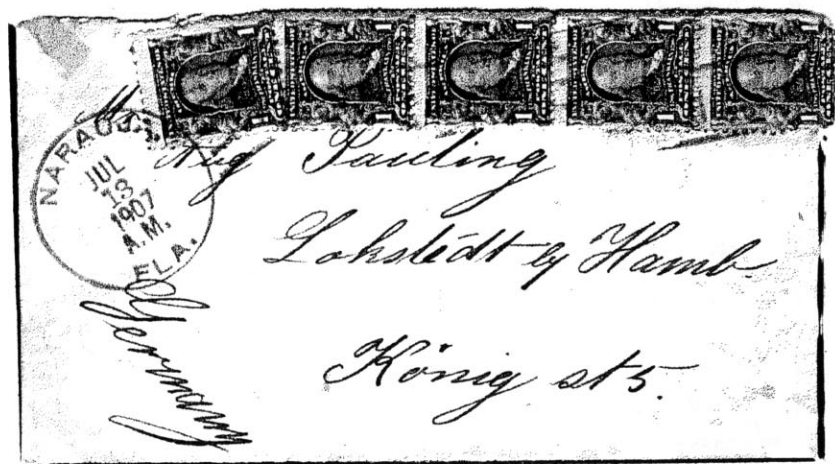 JUL
13
1907
A.M.
FLA.
Aug Pauling
Lokstedt by Hamb.
König st 5.
Germany